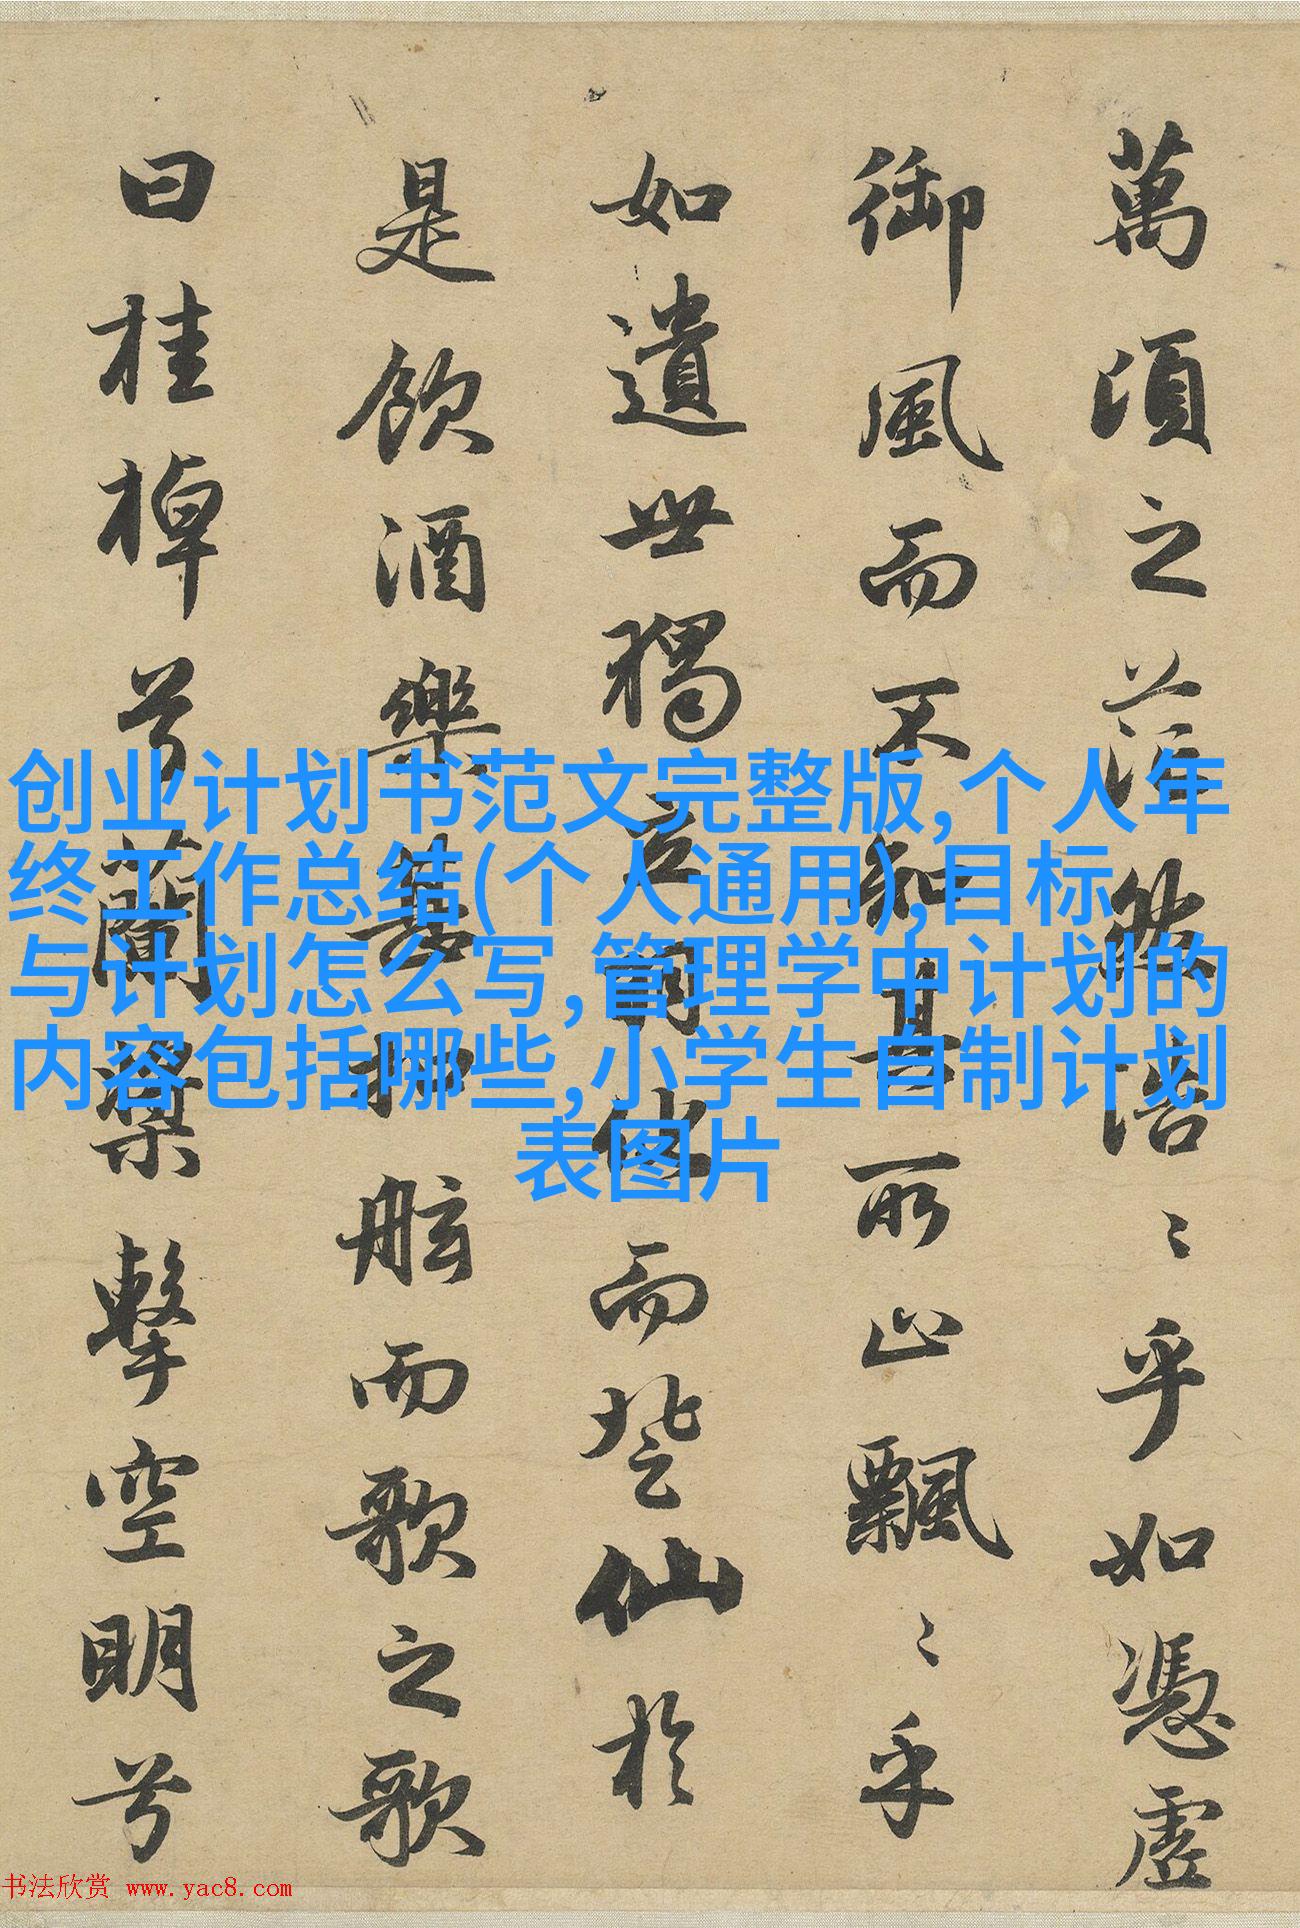 萬頃之茫然浩〻乎如憑虛
御風而不知其所止飄〻乎
如遺世獨立羽化而登仙於
是飲酒樂甚扣舷而歌之歌
曰桂棹兮蘭槳擊空明兮
创业计划书范文完整版,个人年
终工作总结(个人通用),目标
与计划怎么写,管理学中计划的
内容包括哪些,小学生自制计划
表图片
书法欣赏 www.yac8.com